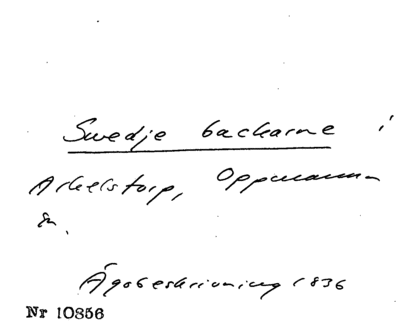 Swedje backarne i
Arkelstorp, Oppmanna
sn.
Ägobeskrivning 1836
Nr 10856